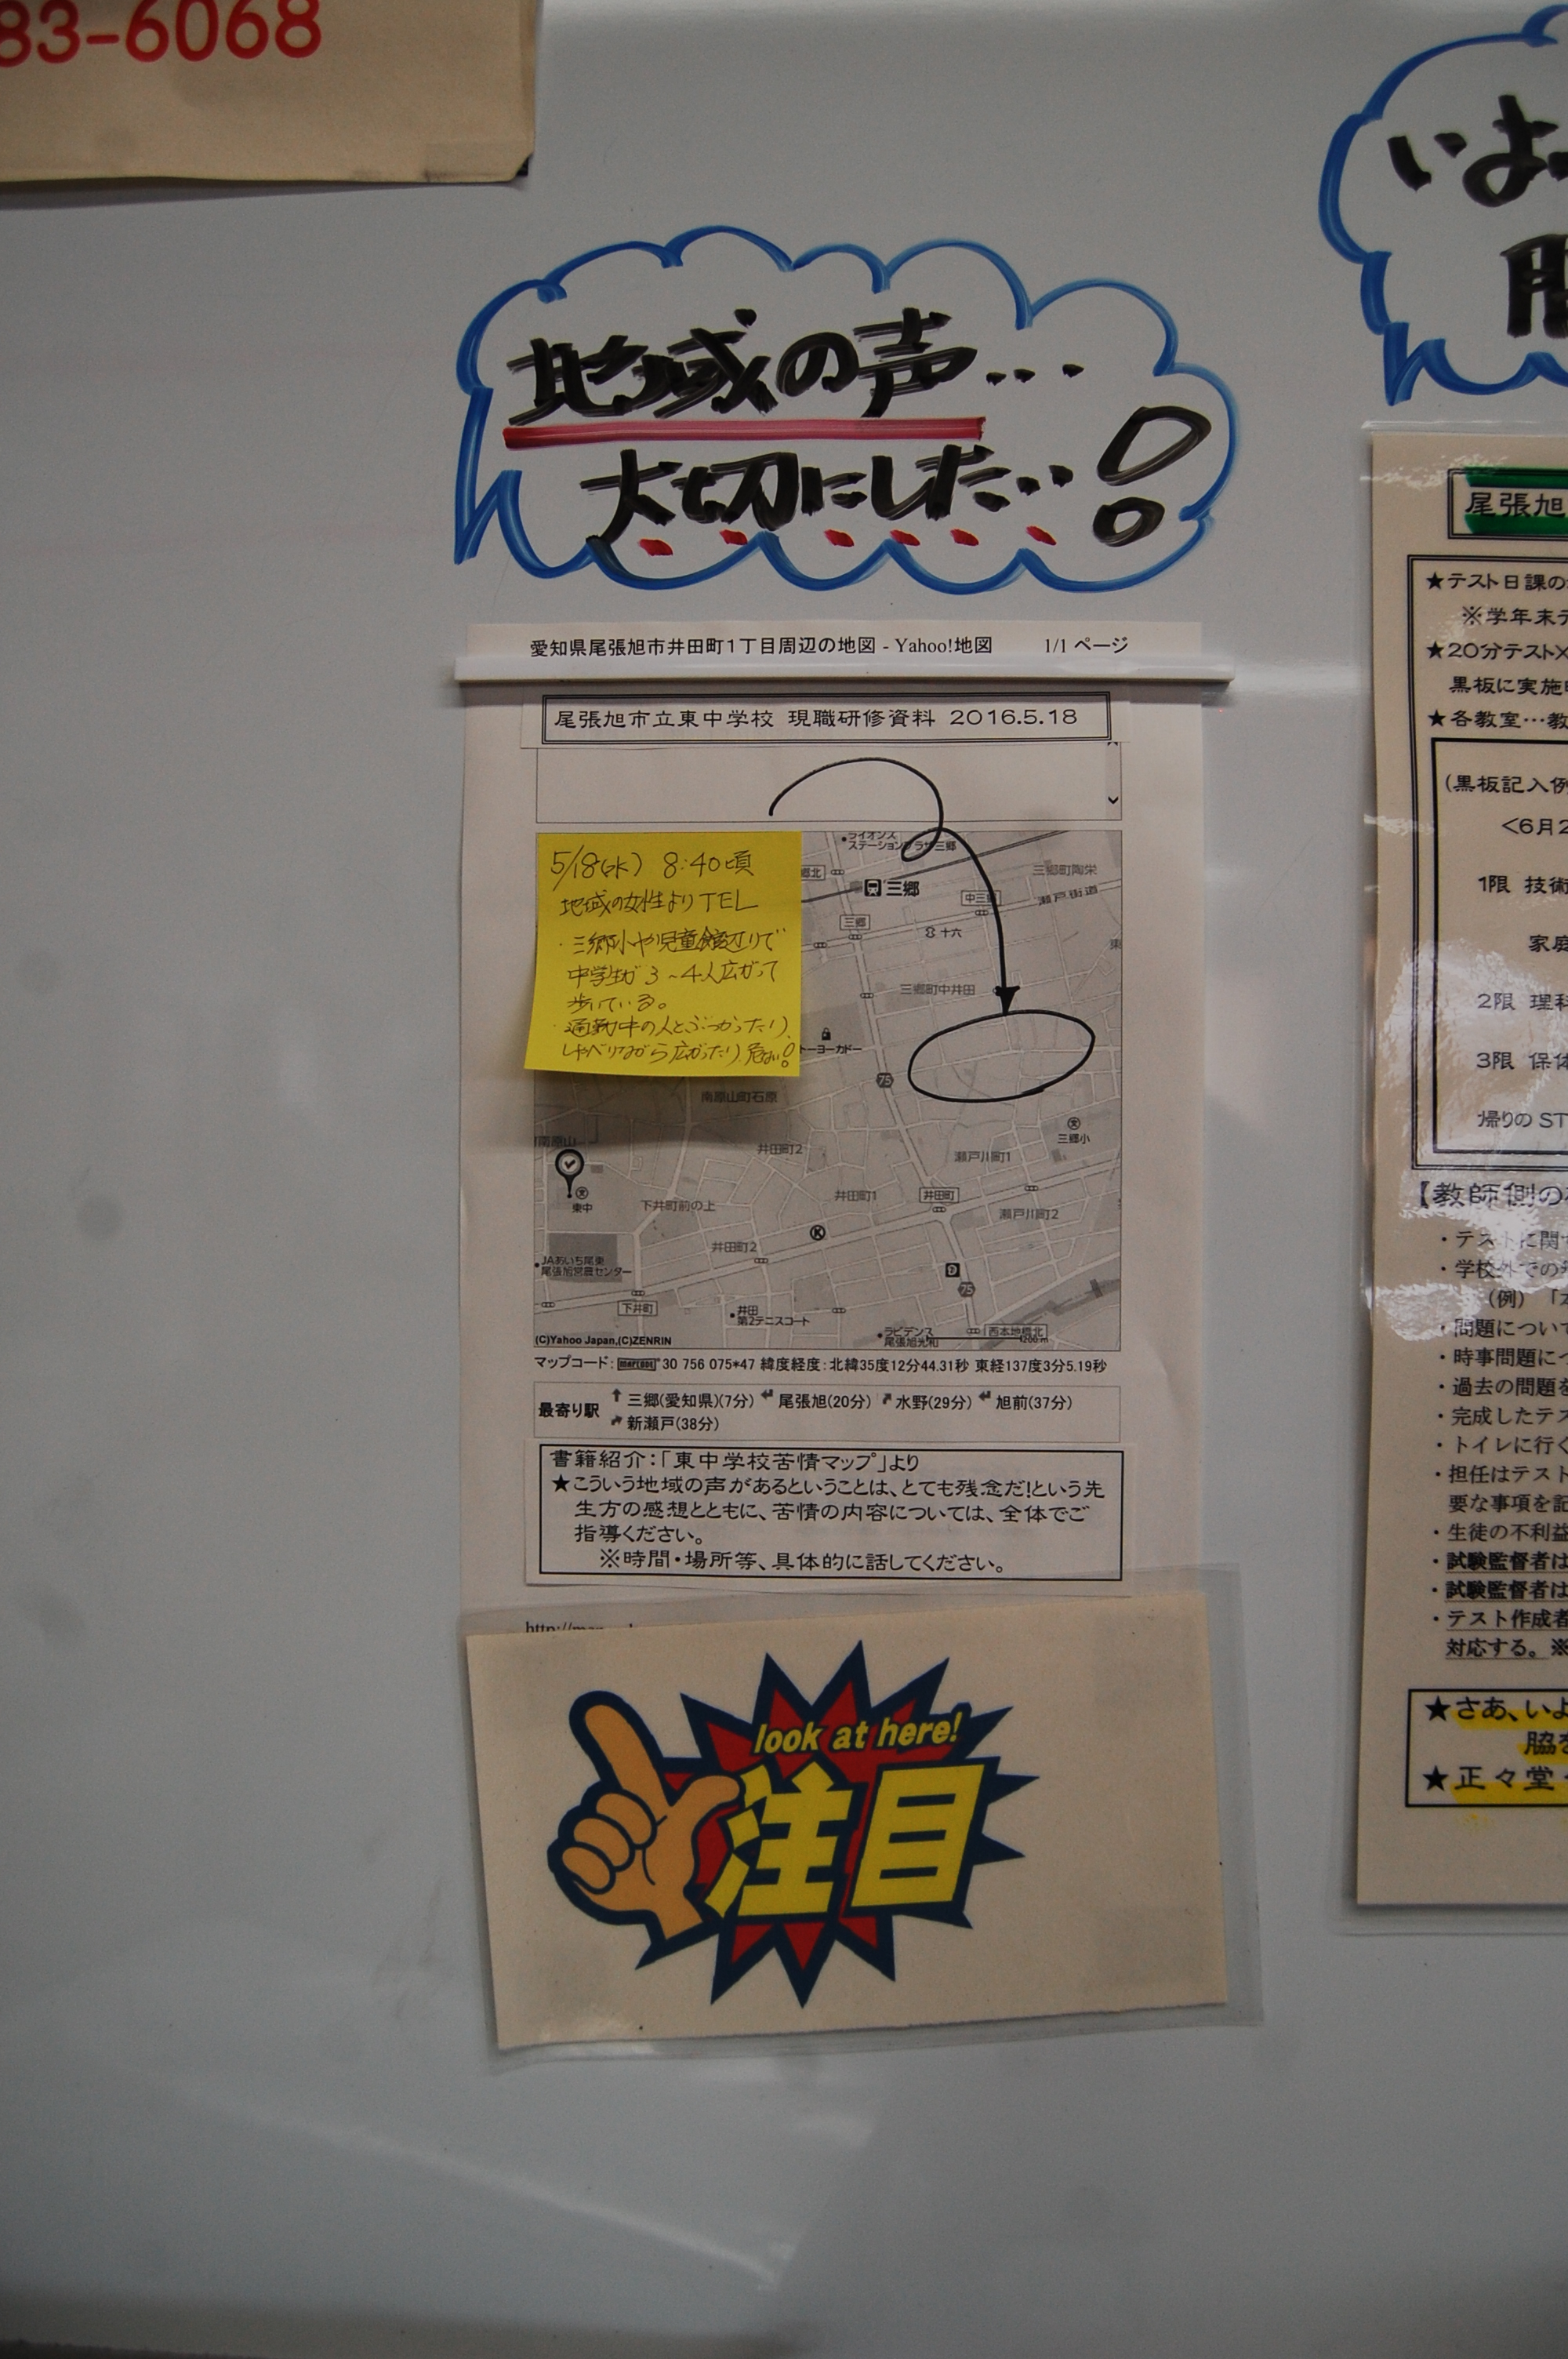 83-6068
地域の声...
大切にしたい!
愛知県尾張旭市井田町1丁目周辺の地図 - Yahoo!地図 1/1 ページ
尾張旭市立東中学校 現職研修資料 2016.5.18
5/18(水) 8:40頃
地域の女性よりTEL
・三郷小や児童館辺りで
中学生が3~4人広がって
歩いている。
・通勤中の人とぶつかったり、
しゃべりながら広がったり危ない!
ライオンズ
ステーションプラザ三郷
郷北
三郷
三郷町陶栄
瀬戸街道
中三郷
三郷
十六
三郷町中井田
トーヨーカドー
75
南原山町石原
三郷小
南原山
井田町2
瀬戸川町1
東中
下井町前の上
井田町1
井田町
瀬戸川町2
井田町2
JAあいち尾東
尾張旭営農センター
下井町
井田
第2テニスコート
75
ラビデンス
尾張旭光和
西本地橋北
200m
(C)Yahoo Japan,(C)ZENRIN
マップコード: mapcode 30 756 075*47 緯度経度:北緯35度12分44.31秒 東経137度3分5.19秒
最寄り駅 三郷(愛知県)(7分) 尾張旭(20分) 水野(29分) 旭前(37分)
新瀬戸(38分)
書籍紹介:「東中学校苦情マップ」より
★こういう地域の声があるということは、とても残念だ!という先
生方の感想とともに、苦情の内容については、全体でご
指導ください。
※時間・場所等、具体的に話してください。
look at here!
注目
いよ
尾張旭
★テスト日課の
※学年末テ
★20分テスト×
黒板に実施
★各教室…教
(黒板記入例
<6月2
1限 技術
家庭
2限 理科
3限 保体
帰りのST
【教師側の
・テストに関
・学校外での
(例)「
・問題につい
・時事問題に
・過去の問題を
・完成したテス
・トイレに行く
・担任はテスト
要な事項を記
・生徒の不利益
・試験監督者は
・試験監督者は
・テスト作成者
対応する。※
★さあ、いよ
脇を
★正々堂